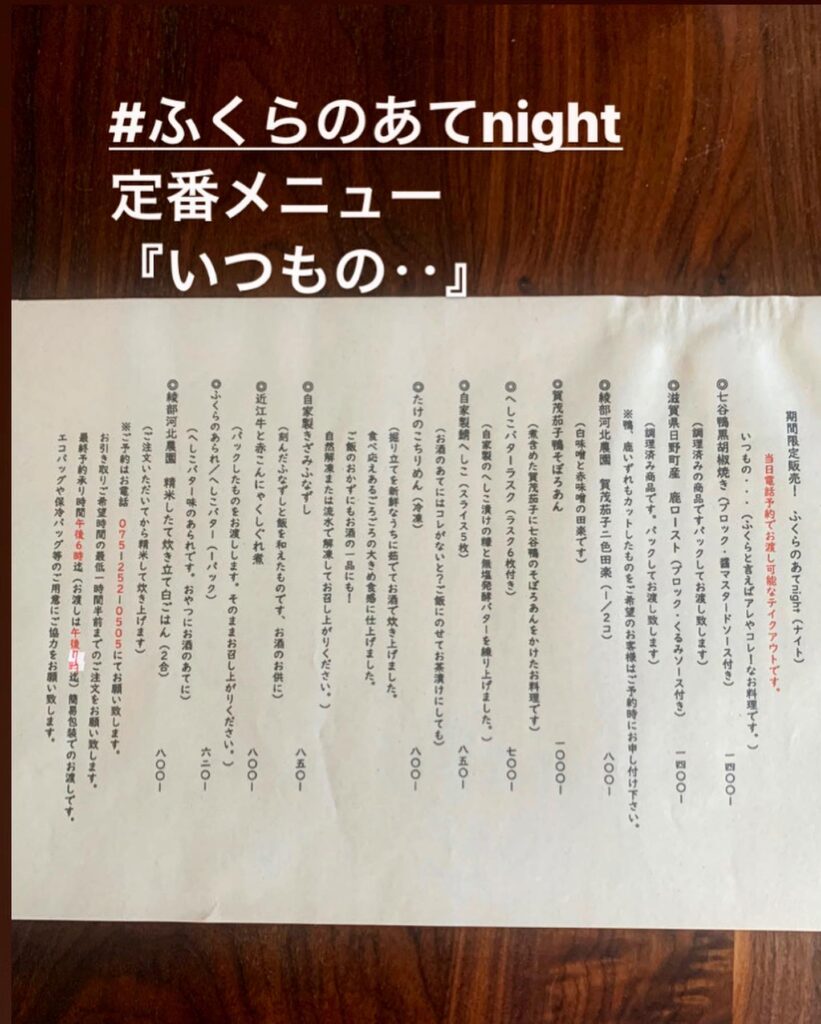 #ふくらのあてnight
定番メニュー
『いつもの‥』
期間限定販売！　ふくらのあてnight（ナイト）
当日電話予約でお渡し可能なテイクアウトです。
いつもの・・・（ふくらと言えばアレやコレーなお料理です。）
◎七谷鴨黒胡椒焼き（ブロック・醤マスタードソース付き）　一四〇〇ー
（調理済みの商品ですパックしてお渡し致します）
◎滋賀県日野町産　鹿ロースト（ブロック・くるみソース付き）　一四〇〇ー
（調理済み商品です。パックしてお渡し致します）
※鴨、鹿いずれもカットしたものをご希望のお客様はご予約時にお申し付け下さい。
◎綾部河北農園　賀茂茄子二色田楽（１／２コ）　八〇〇ー
（白味噌と赤味噌の田楽です）
◎賀茂茄子鴨そぼろあん　一〇〇〇ー
（煮含めた賀茂茄子に七谷鴨のそぼろあんをかけたお料理です）
◎へしこバターラスク（ラスク６枚付き）　七〇〇ー
（自家製のへしこ漬けの糠と無塩発酵バターを練り上げました。）
◎自家製鯖へしこ（スライス５枚）　八五〇ー
（お酒のあてにはコレがないと？ご飯にのせてお茶漬けにしても）
◎たけのこちりめん（冷凍）　八〇〇ー
（掘り立てを新鮮なうちに茹でてお酒で炊き上げました。
食べ応えあるごろごろの大きめ食感に仕上げました。
ご飯のおかずにもお酒の一品にも！
自然解凍または流水で解凍してお召し上がりください。）
◎自家製きざみふなずし　八五〇ー
（刻んだふなずしと飯を和えたものです、お酒のお供に）
◎近江牛と赤こんにゃくしぐれ煮　八〇〇ー
（パックしたものをお渡しします。そのままお召し上がりください。）
◎ふくらのあられ／へしこバター（１パック）　六二〇ー
（へしこバター味のあられです。おやつにお酒のあてに）
◎綾部河北農園　精米したて炊き立て白ごはん（２合）　八〇〇ー
（ご注文いただいてから精米して炊き上げます）
※ご予約はお電話　０７５ー２５２ー０５０５にてお願い致します。
お引き取りご希望時間の最低一時間半前までのご注文をお願い致します。
最終予約承り時間午後６時迄（お渡しは午後７時迄）簡易包装でのお渡しです。
エコバッグや保冷バッグ等のご用意にご協力をお願い致します。